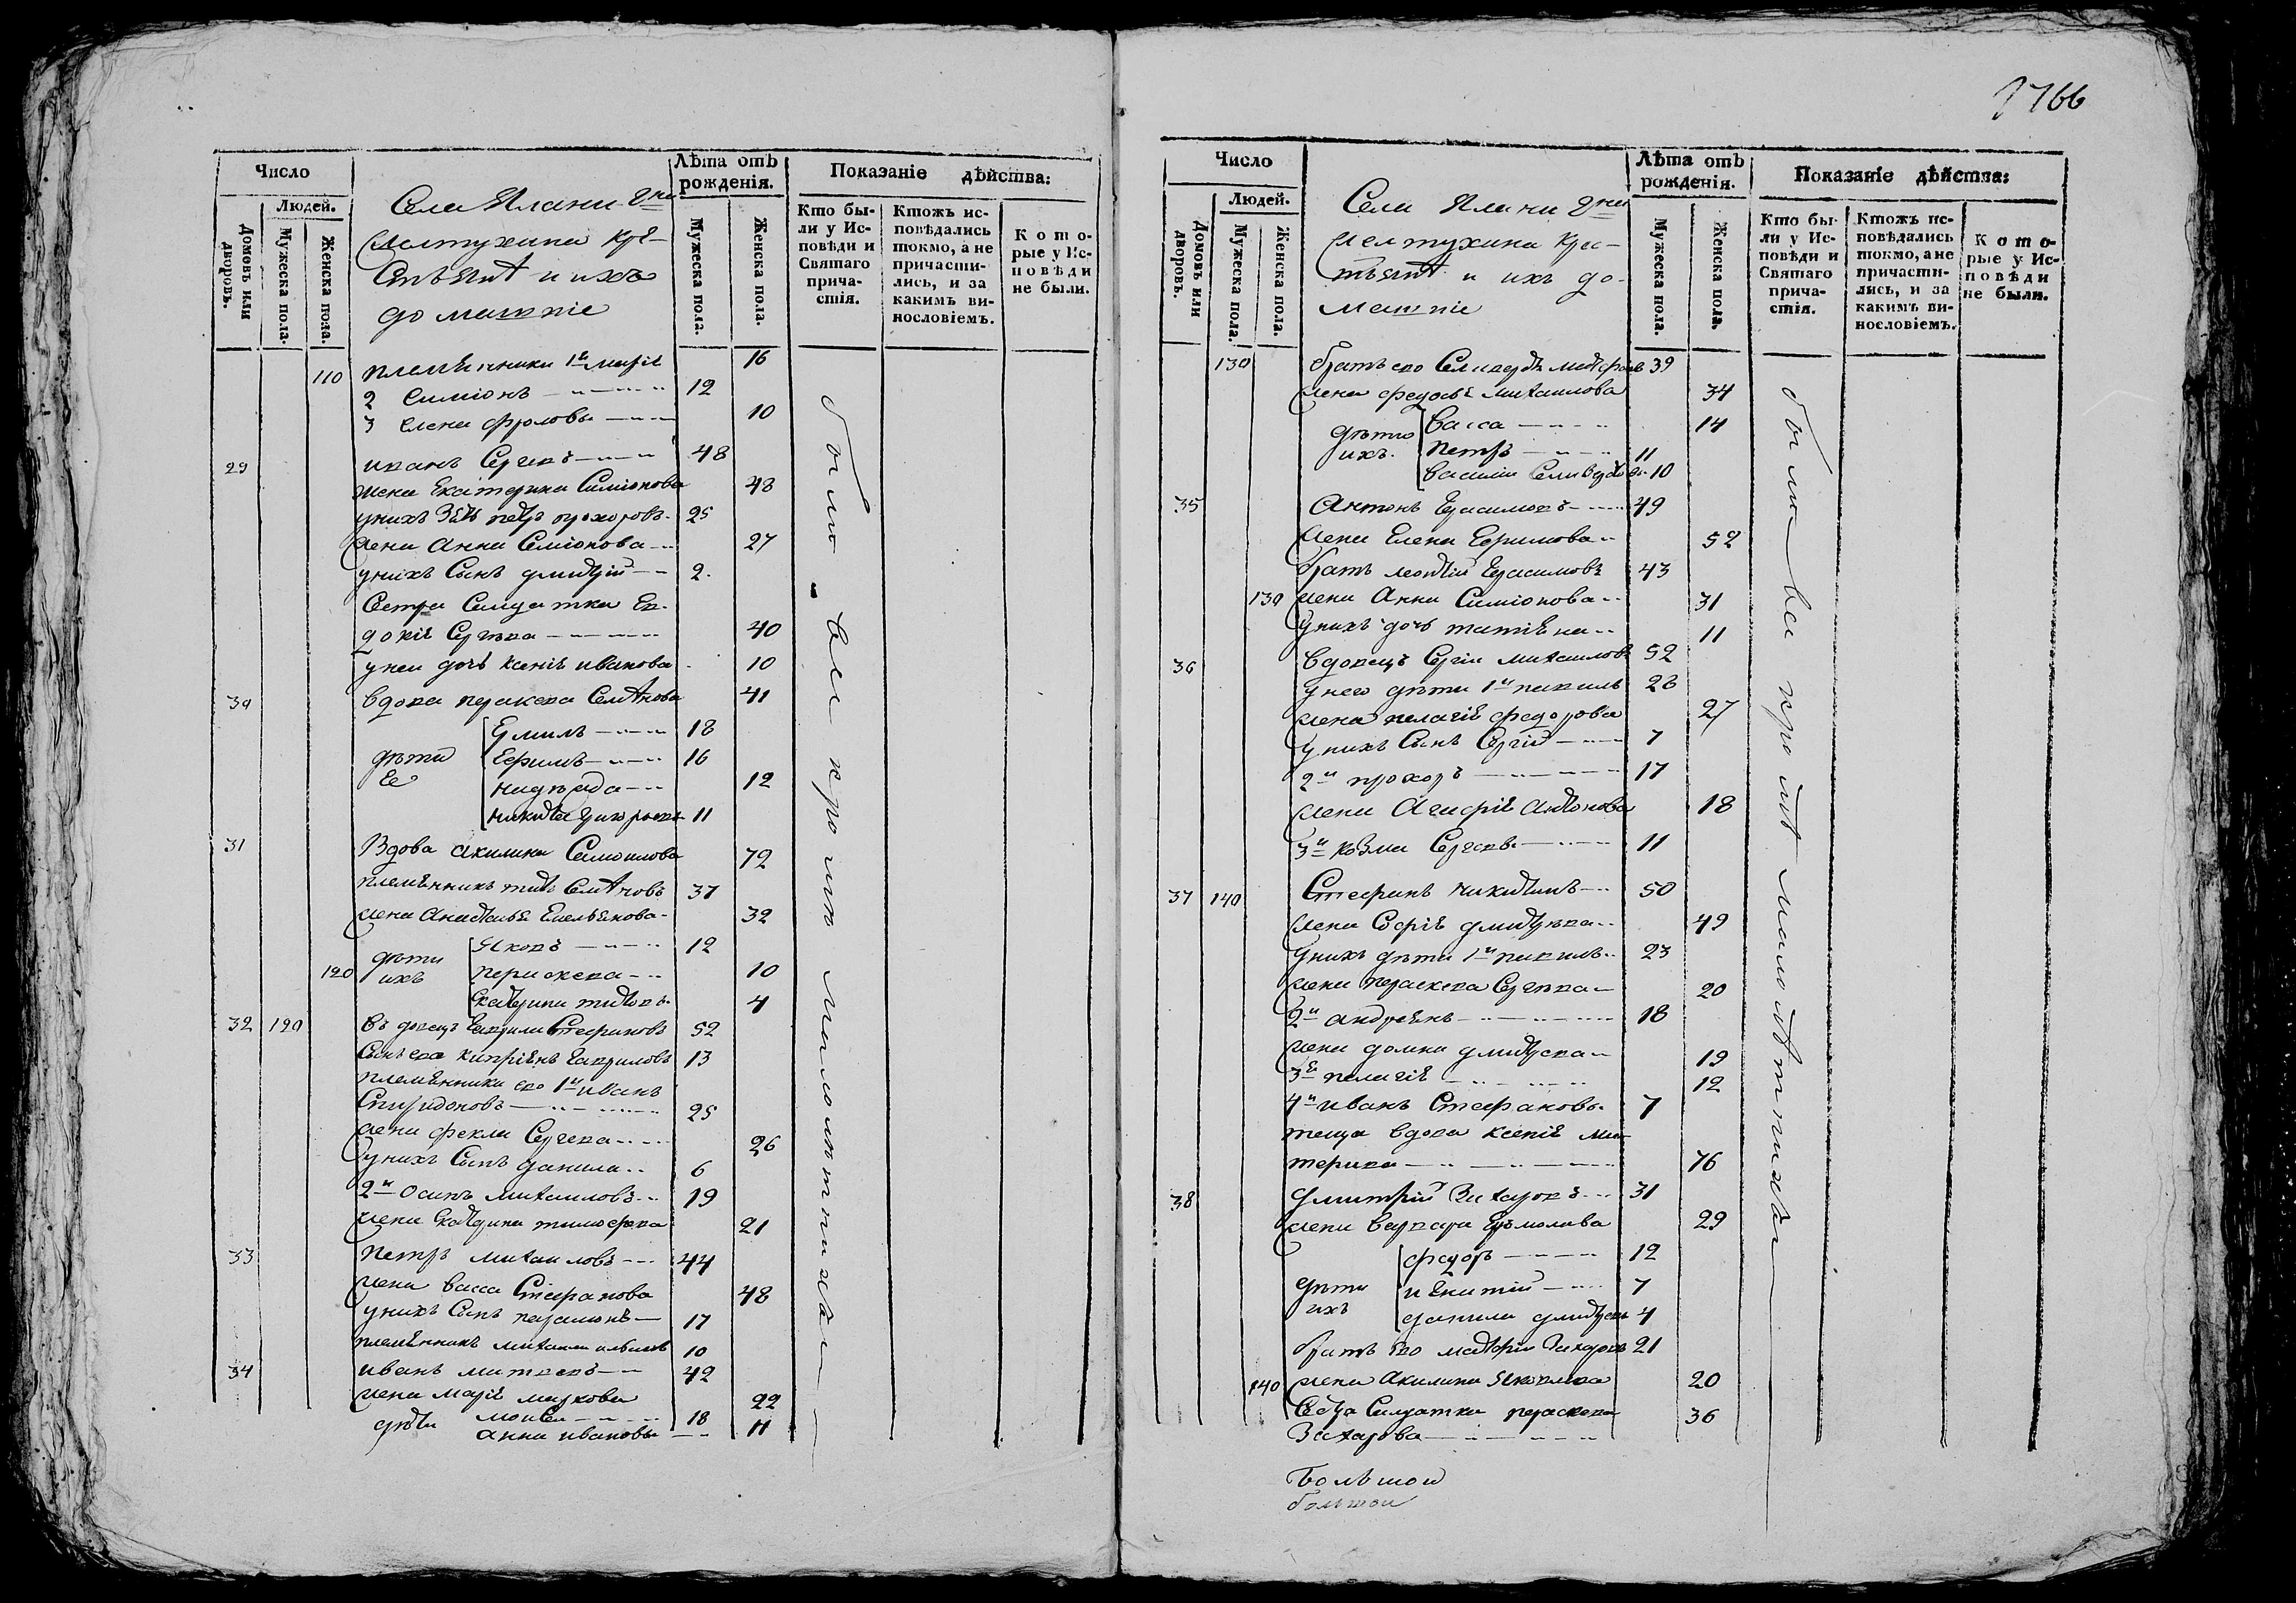 Число
Людей.
Домовъ или дворовъ.
Мужеска пола.
Женска пола.
Села Алани г-на
Желтухина кре-
стьянъ и ихъ
домашніе
Лѣта отъ рожденія.
Мужеска пола.
Женска пола.
Показаніе дѣйства:
Кто бы-
ли у Ис-
повѣди и
Святаго
прича-
стія.
Ктожъ ис-
повѣдались
токмо, а не
причасти-
лись, и за
какимъ ви-
нословіемъ.
Кото-
рые у Ис-
повѣди
не были.
110 племянники 1-я маріа 16
2 Симіонъ 12
3 елена фролова 10
29 иванъ Сергевъ 48
жена Екатерина Симіонова 48
у нихъ зять петръ прохоровъ 25
жена Анна Семіонова 27
у нихъ Сынъ дмитрій 2
Сестра Салдатка Ев-
докіа Сергѣва 40
у неи дочь ксеніа иванова 10
30 вдова параскева Семѣнова 41
дѣти ее
Ермилъ 18
Ефимъ 16
надѣжда 12
никита 11
31 Вдова акилина Самоилова 72
племянникъ титъ Семѣновъ 37
жена Анастасья Емельянова 32
дѣти ихъ
Яковъ 12
120 параскева 10
екатерина титова 4
32 120 въдовецъ Гаврила Стефановъ 52
Сынъ его кипріянъ Гавриловъ 13
племянники его 1-й иванъ
Спиридоновъ 25
жена фекла Сергева 26
у нихъ Сынъ данила 6
2-й Осипъ михаиловъ 19
жена екатерина тимофева 21
33 петръ михаиловъ 44
жена васса Стефанова 48
у нихъ Сынъ парамонъ 17
племянникъ михаила 10
34 иванъ матвевъ 42
жена маріа маркова 22
дѣти моисеи 18
анна ивановы 11
были вси кромѣ малолѣтнихъ
9766
Число
Людей.
Домовъ или дворовъ.
Мужеска пола.
Женска пола.
Села Алани г-на
желтухина крес-
тьянѣ и ихъ до-
машніе
Лѣта отъ рожденія.
Мужеска пола.
Женска пола.
Показаніе дѣйства:
Кто бы-
ли у Ис-
повѣди и
Святаго
прича-
стія.
Ктожъ ис-
повѣдались
токмо, а не
причасти-
лись, и за
какимъ ви-
нословіемъ.
Кото-
рые у Ис-
повѣди
не были.
130 братъ его Селиверстъ 39
жена федосья михаилова 34
дѣти ихъ
васса 14
петръ 11
василіи Селиверстовы 10
35 Антонъ Герасимовъ 49
жена Елена Ефимова 52
братъ леонтій Герасимовъ 43
130 жена Анна Симіонова 31
у нихъ дочь татіяна 11
36 вдовецъ Сергіи михаиловъ 52
у него дѣти 1-й павилъ 26
жена пелагіа федорова 27
у нихъ Сынъ Сергій 7
2-й прохоръ 17
жена Агафіа антонова 18
3-й козма Сергевы 11
37 140 Стефанъ никитинъ 50
жена Софіа дмитрѣва 49
у нихъ дѣти 1-й павилъ 23
жена параскева Сергѣва 20
2-й андреянъ 18
жена домна дмитрева 19
3-я пелагіа 12
4-й иванъ Стефановы 7
теща вдова ксеніа
76
38 дмитрій Захаровъ 31
жена варвара Ермолаева 29
дѣти ихъ
федоръ 12
игнатій 7
данила дмитревы 4
братъ его матфіи Захаровъ 21
140 жена акилина Яковлева 20
Сестра Салдатка параскева 36
Захарова
были вси кромѣ малолѣтнихъ
Большои
большои